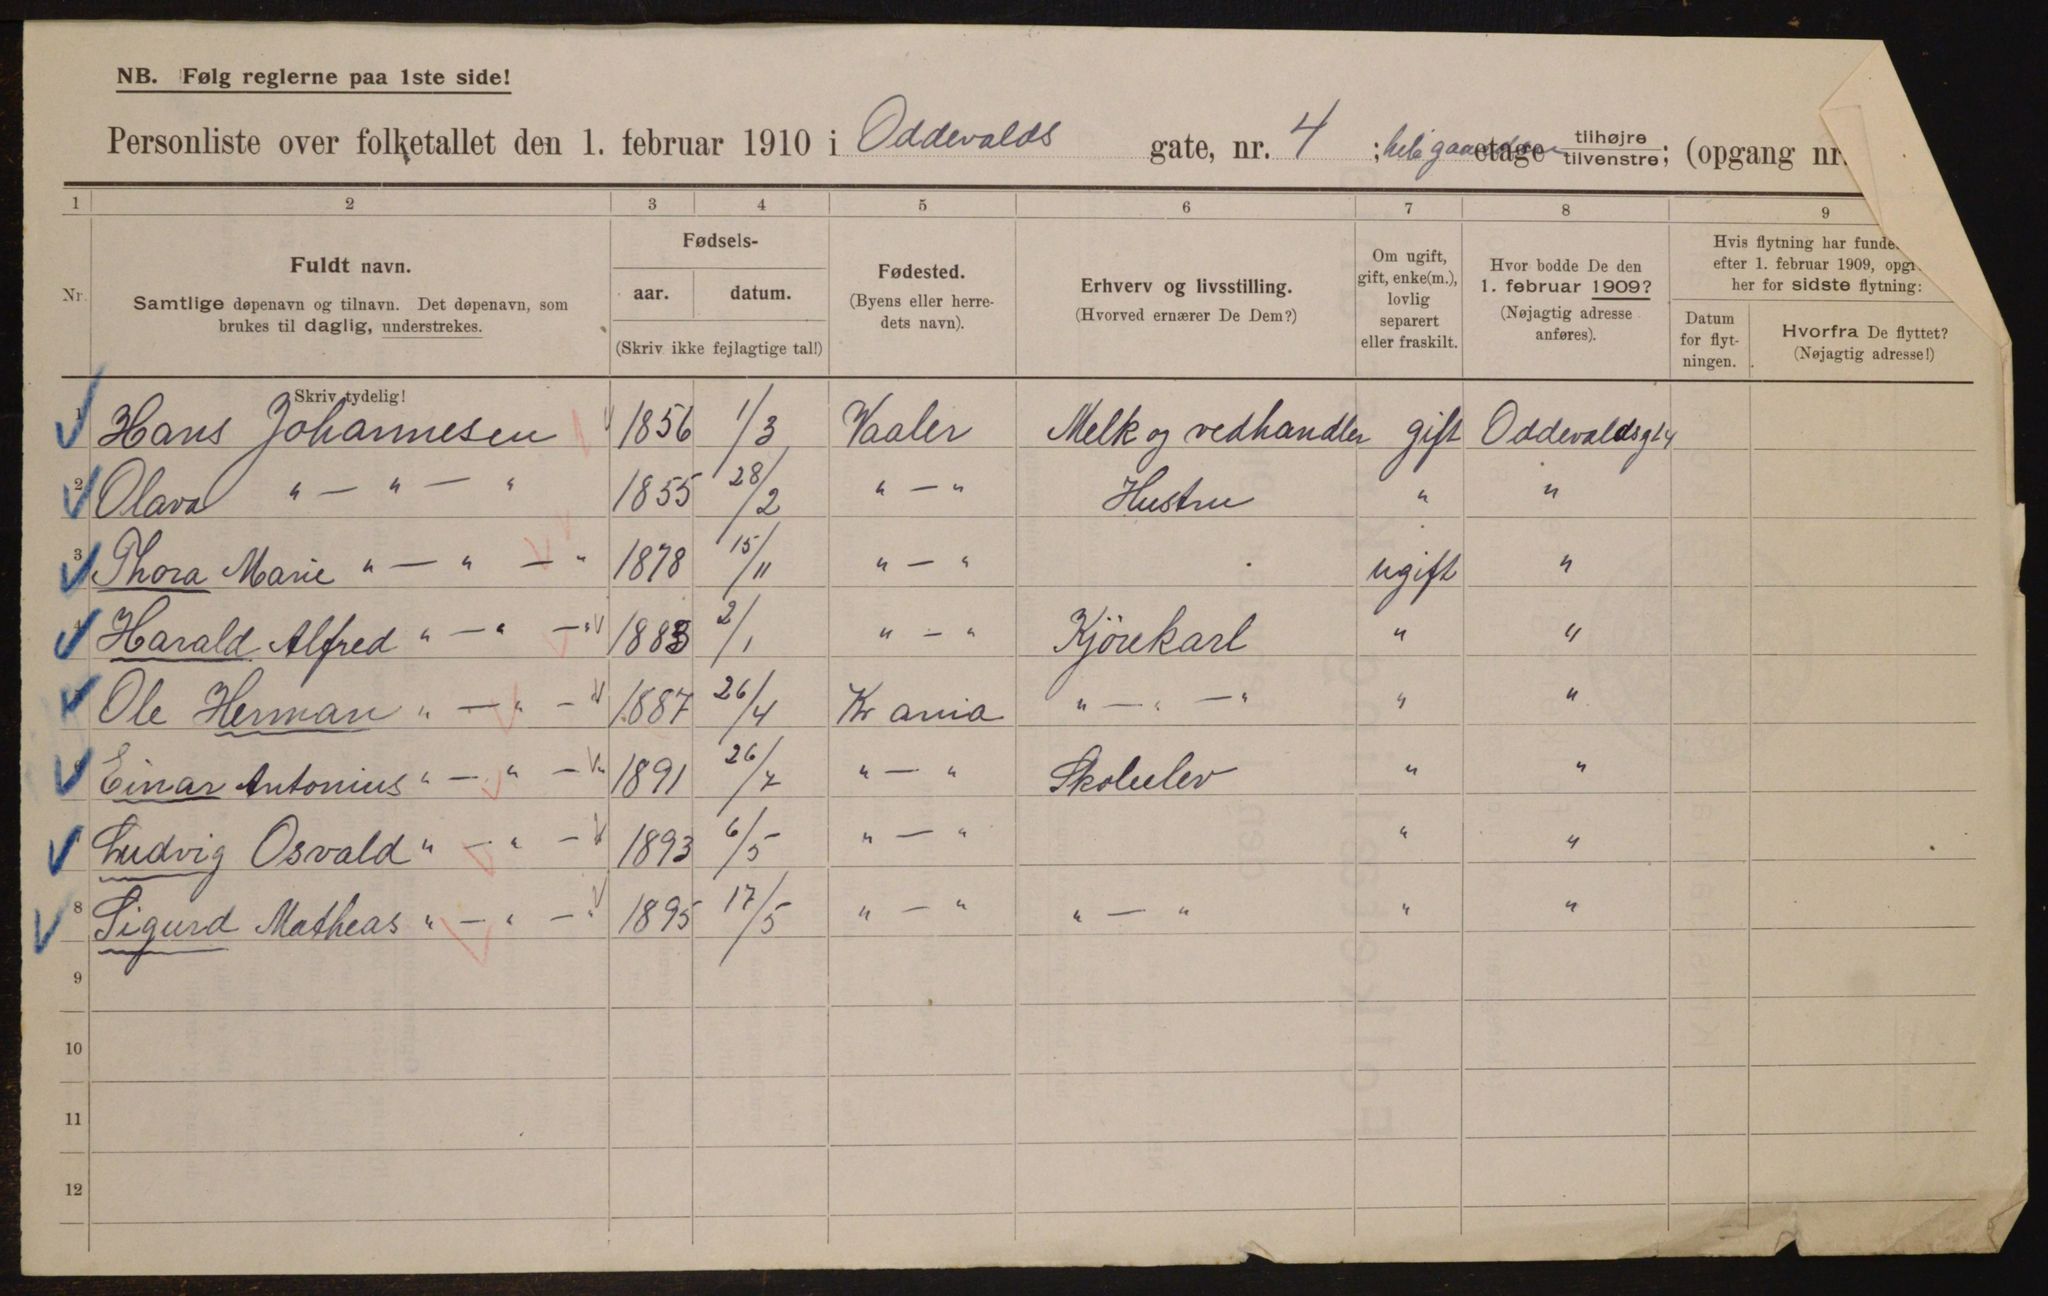 NB. Følg reglerne paa 1ste side!
Personliste over folketallet den 1. februar 1910 i Oddevalds gate, nr. 4 ; hele etage tilhøjre tilvenstre; (opgang nr.
1 2 3 4 5 6 7 8 9
Nr.
Fuldt navn.
Samtlige døpenavn og tilnavn. Det døpenavn, som
brukes til daglig, understrekes.
Skriv tydelig!
Fødsels-
aar. datum.
(Skriv ikke fejlagtige tal!)
Fødested.
(Byens eller herre-
dets navn).
Erhverv og livsstilling.
(Hvorved ernærer De Dem?)
Om ugift,
gift, enke(m.),
lovlig
separert
eller fraskilt.
Hvor bodde De den
1. februar 1909?
(Nøjagtig adresse
anføres).
Hvis flytning har funde
efter 1. februar 1909, opgi
her for sidste flytning:
Datum
for flyt-
ningen.
Hvorfra De flyttet?
(Nøjagtig adresse!)
1 Hans Johannesen 1856 1/3 Vaaler Melk og vedhandler gift Oddevaldsgt 4
2 Olava " — " — " 1855 28/2 " — " Hustru " "
3 Thora Marie " — " — " 1878 15/11 " — " ugift "
4 Harald Alfred " — " — " 1883 2/1 " — " Kjörekarl " "
5 Ole Herman " — " — " 1887 26/4 Kr ania " — " — " " "
6 Einar Antonius " — " — " 1891 26/7 " — " Skoleelev " "
Ludvig Osvald " — " — " 1893 6/5 " — " " "
8 Sigurd Matheas " — " — " 1895 17/5 " — " " — " " "
9
10
11
12